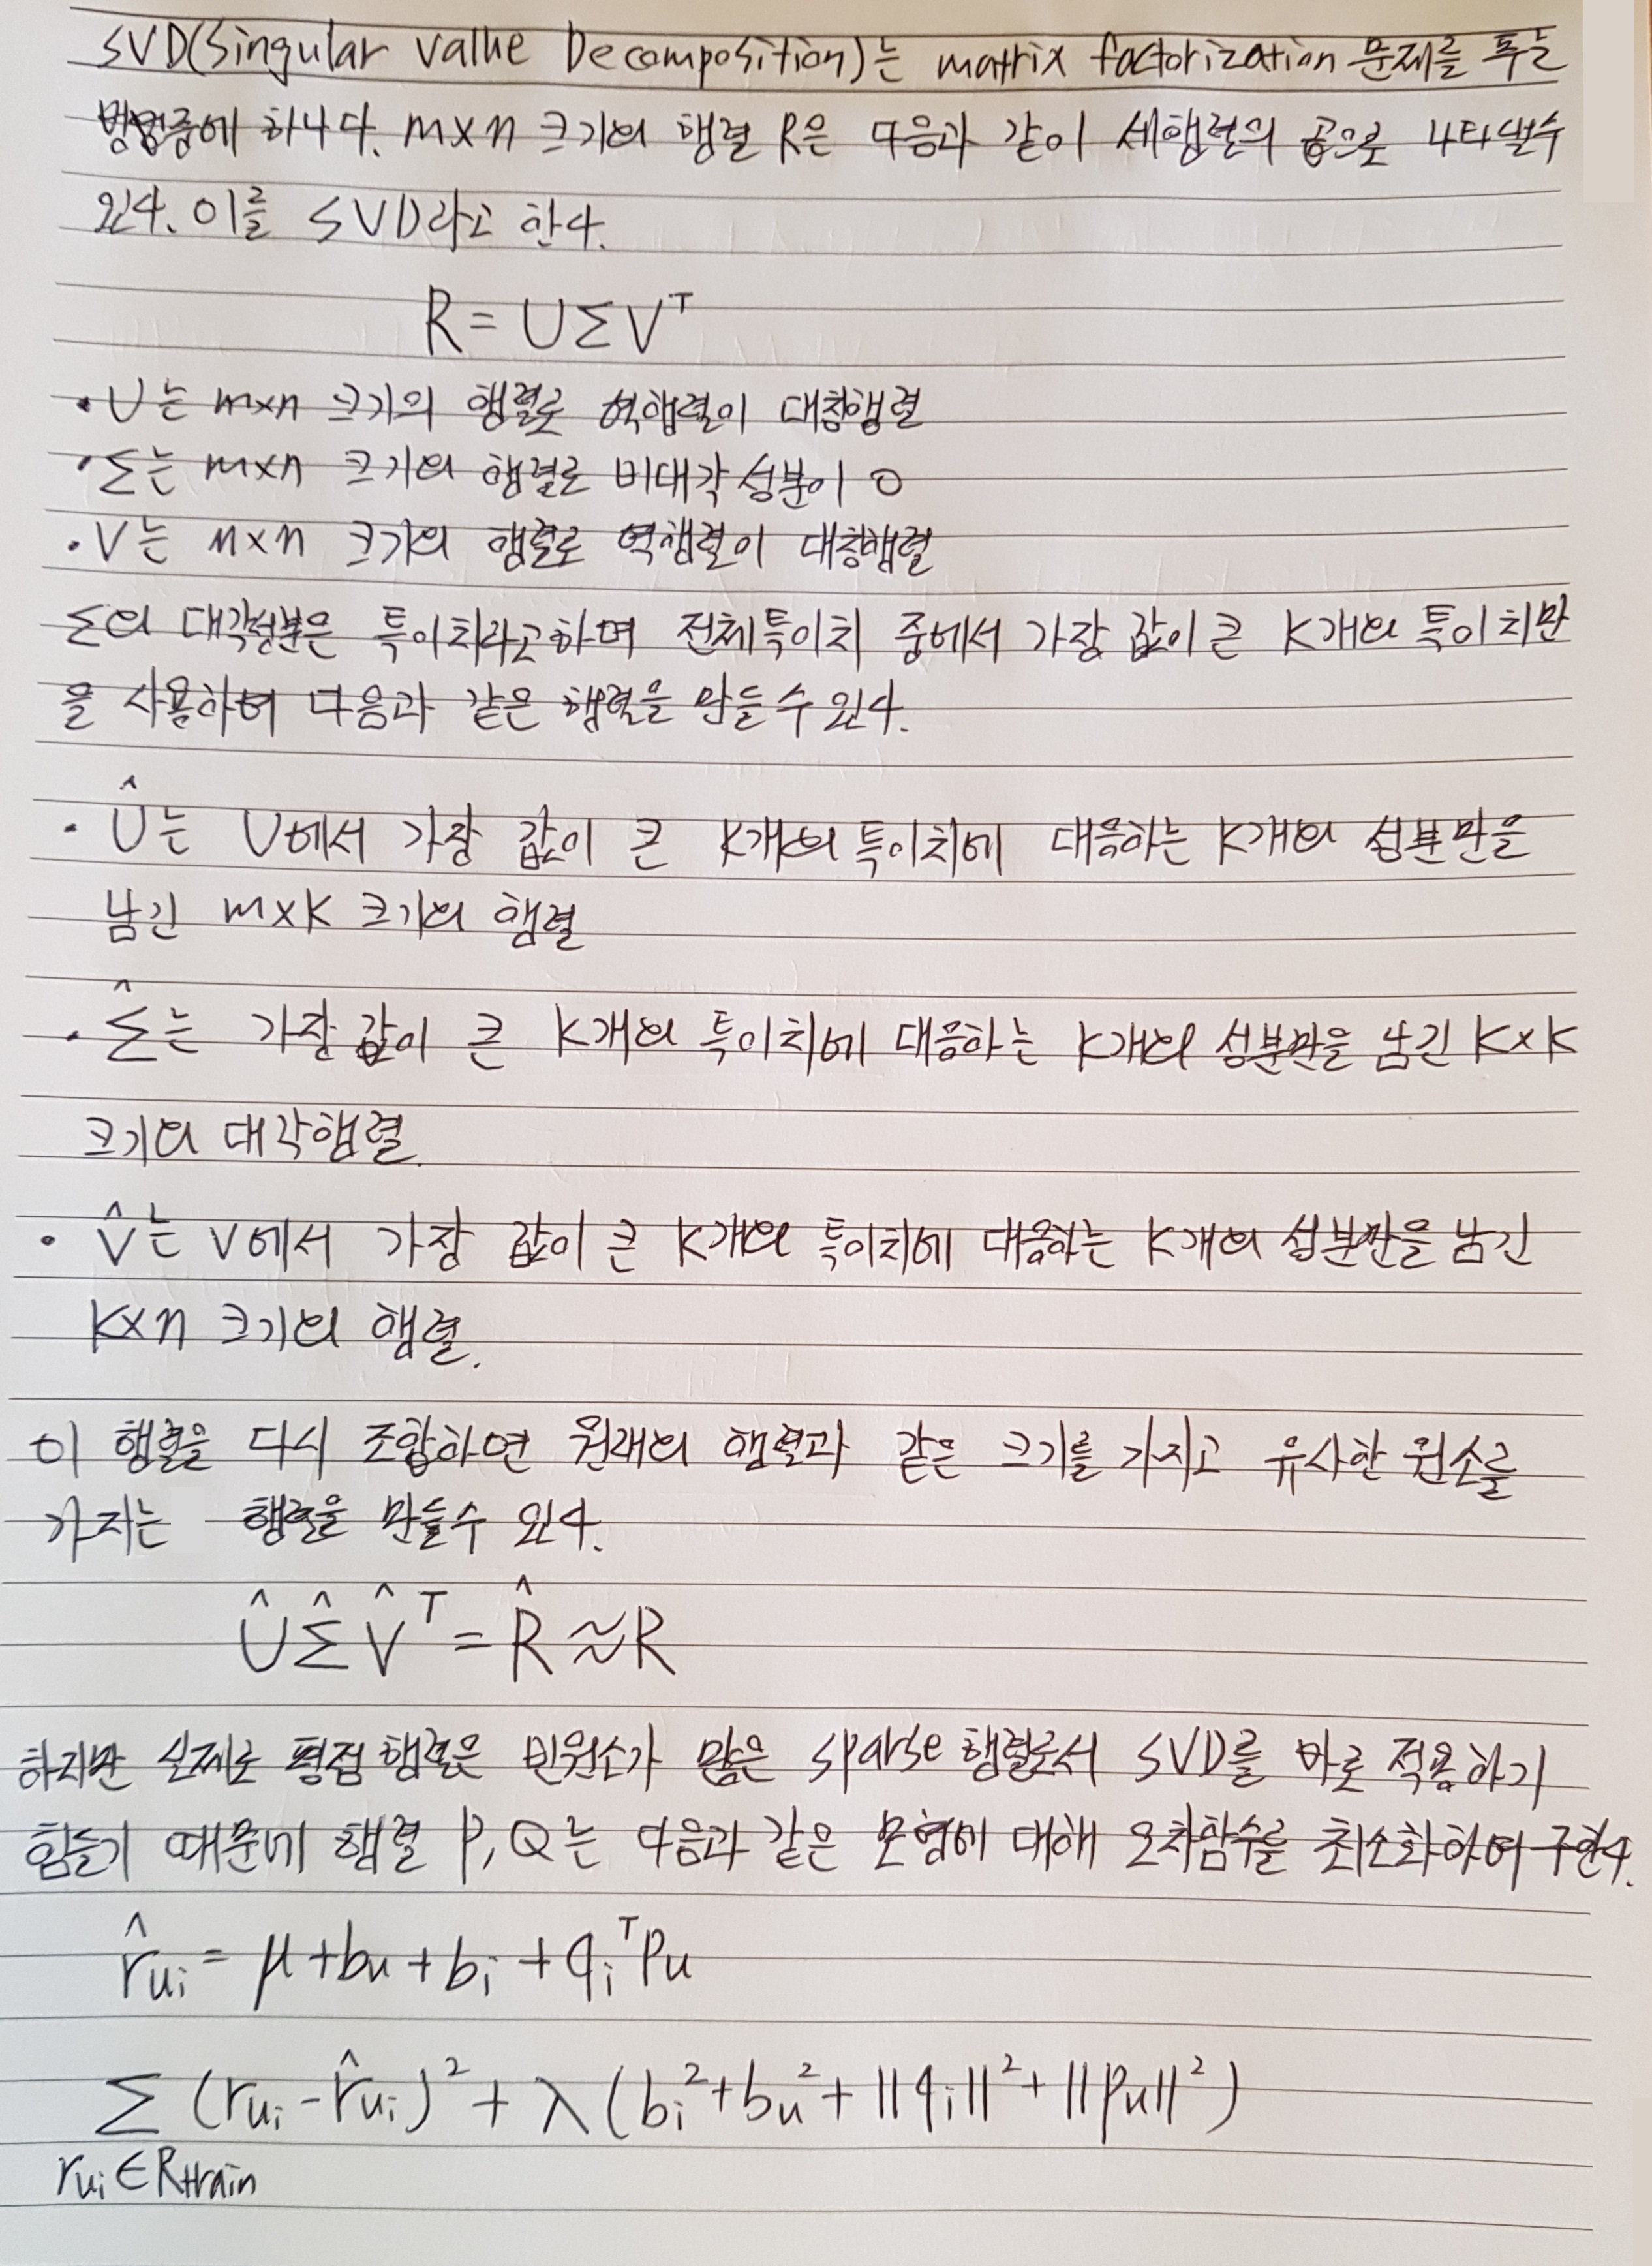 SVD(Singular Value Decomposition)는 matrix factorization 문제를 푸는
방법중에 하나다. m×n 크기의 행렬 R은 다음과 같이 세행렬의 곱으로 나타낼수
있다. 이를 SVD라고 한다.
R = UΣV^T
• U는 m×n 크기의 행렬로 역행렬이 대칭행렬
• Σ는 m×n 크기의 행렬로 비대각 성분이 0
• V는 n×n 크기의 행렬로 역행렬이 대칭행렬
Σ의 대각성분은 특이치라고하며 전체특이치 중에서 가장 값이 큰 K개의 특이치만
을 사용하여 다음과 같은 행렬을 만들 수 있다.
• Û는 U에서 가장 값이 큰 K개의 특이치에 대응하는 K개의 성분만을
남긴 m×K 크기의 행렬
• Σ̂는 가장 값이 큰 K개의 특이치에 대응하는 K개의 성분만을 남긴 K×K
크기의 대각행렬.
• V̂는 V에서 가장 값이 큰 K개의 특이치에 대응하는 K개의 성분만을 남긴
K×n 크기의 행렬.
이 행렬을 다시 조합하면 원래의 행렬과 같은 크기를 가지고 유사한 원소를
가지는 행렬을 만들수 있다.
Û Σ̂ V̂^T = R̂ ≈ R
하지만 실제로 평점 행렬은 빈원소가 많은 sparse 행렬로서 SVD를 바로 적용하기
힘들기 때문에 행렬 P, Q는 다음과 같은 모형에 대해 오차함수를 최소화하여 구한다.
r̂_ui = μ + b_u + b_i + q_i^T p_u
Σ (r_ui - r̂_ui)^2 + λ(b_i^2 + b_u^2 + ||q_i||^2 + ||p_u||^2)
r_ui ∈ R_train